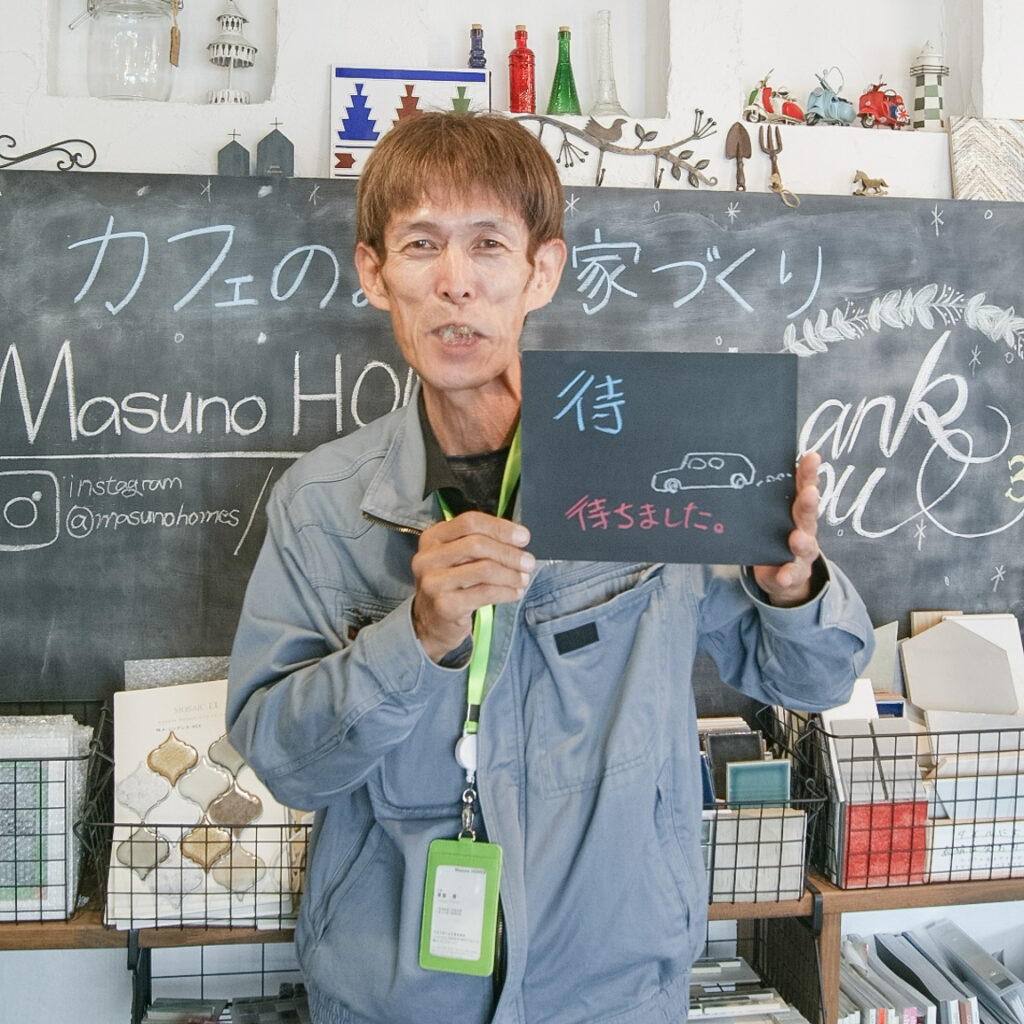 カフェの 家づくり
Masuno HO
instagram
@masunohomes
ank
ou
待
待ちました。
MOSAIC EX
Masuno HOMES